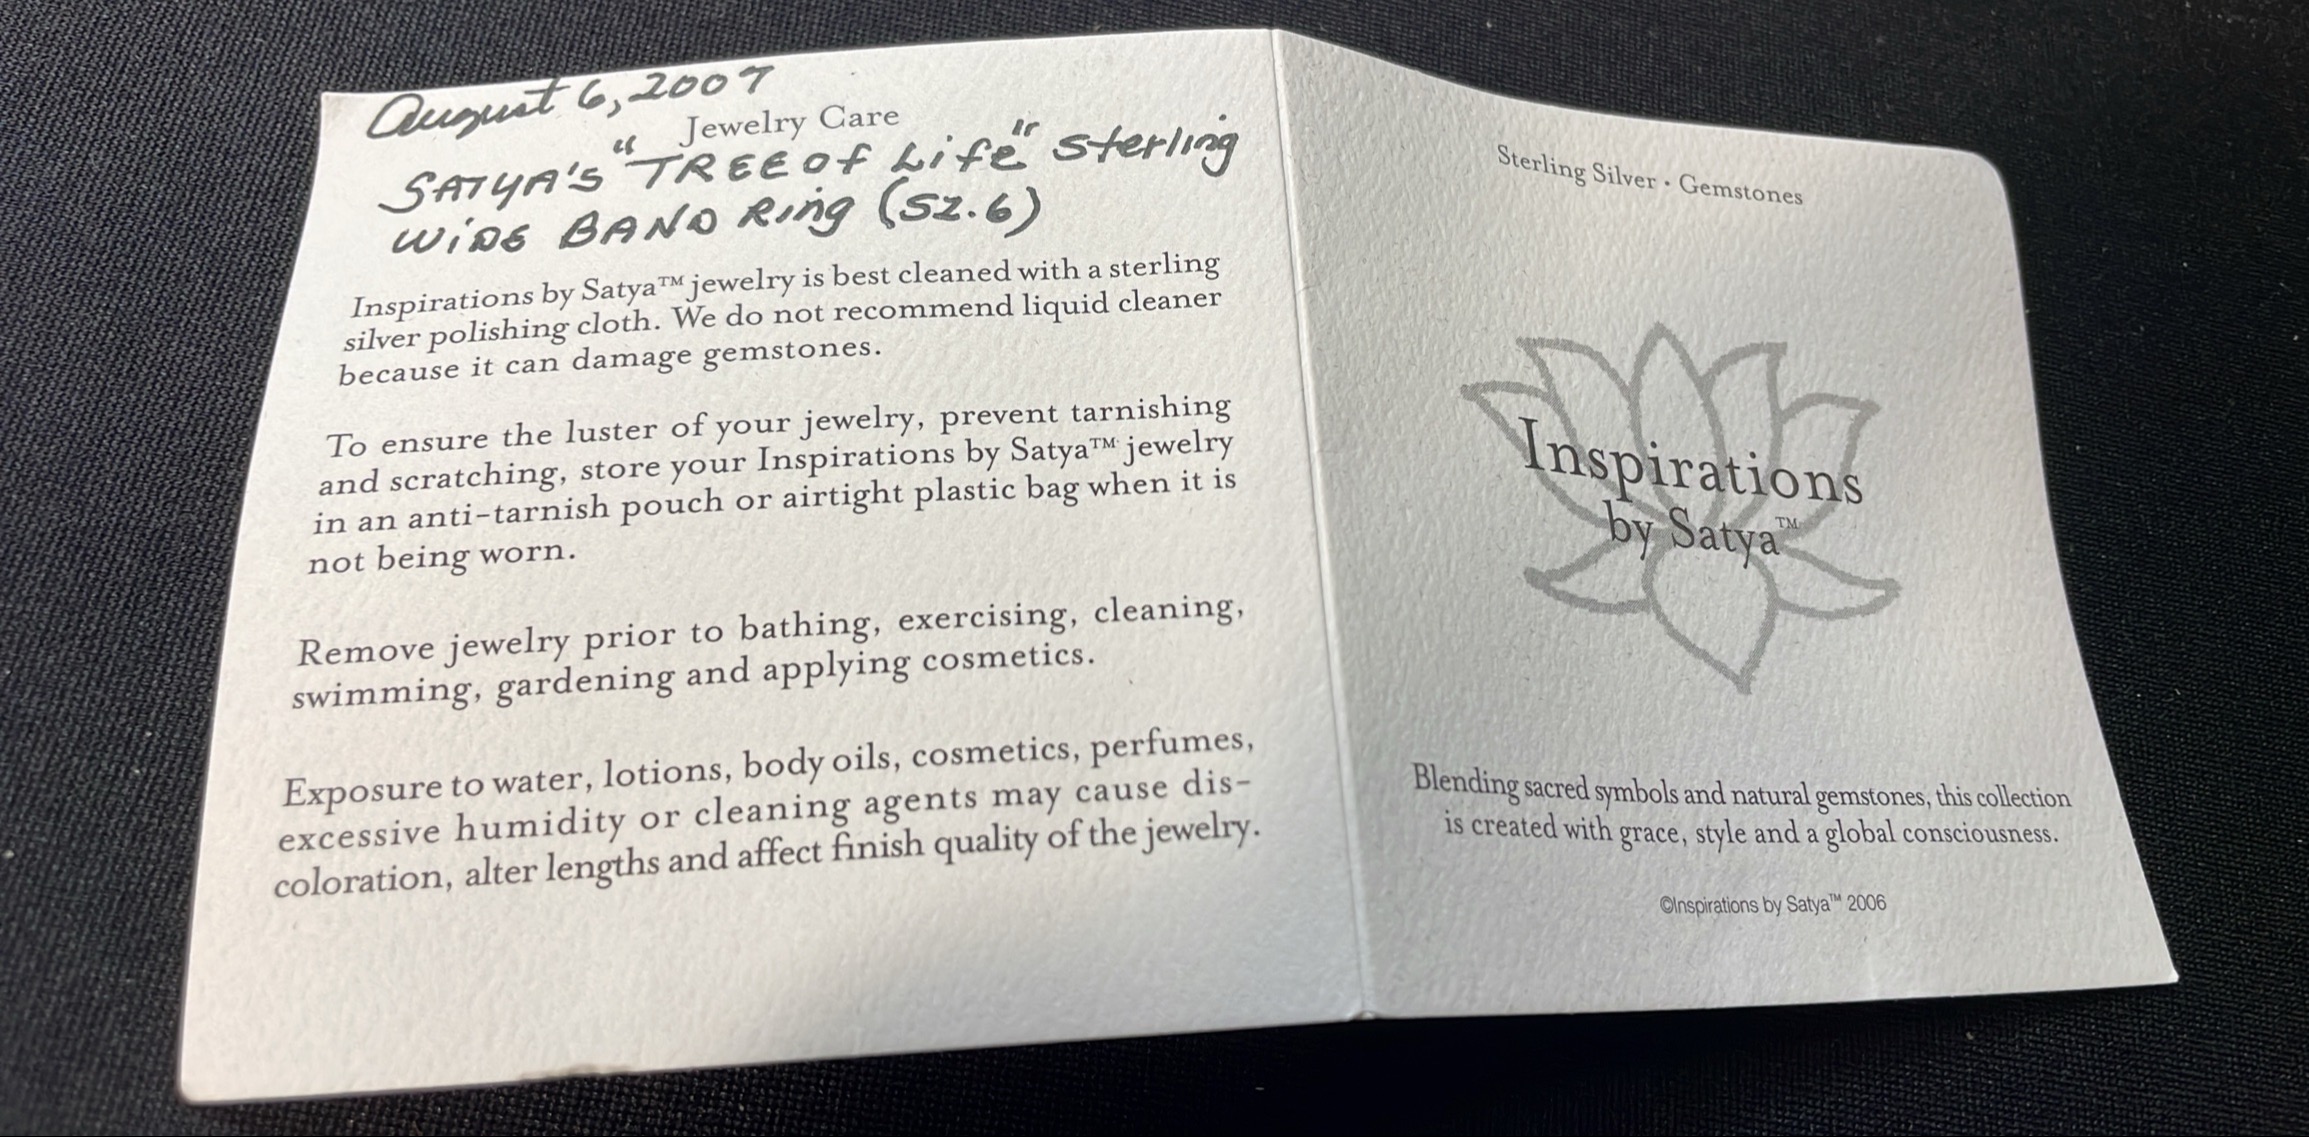 August 6, 2007
Jewelry Care
SATYA'S "TREE OF Life" Sterling
WIDE BAND Ring (SZ.6)
Inspirations by Satya™ jewelry is best cleaned with a sterling
silver polishing cloth. We do not recommend liquid cleaner
because it can damage gemstones.
To ensure the luster of your jewelry, prevent tarnishing
and scratching, store your Inspirations by Satya™ jewelry
in an anti-tarnish pouch or airtight plastic bag when it is
not being worn.
Remove jewelry prior to bathing, exercising, cleaning,
swimming, gardening and applying cosmetics.
Exposure to water, lotions, body oils, cosmetics, perfumes,
excessive humidity or cleaning agents may cause dis-
coloration, alter lengths and affect finish quality of the jewelry.
Sterling Silver • Gemstones
Inspirations
by Satya™
Blending sacred symbols and natural gemstones, this collection
is created with grace, style and a global consciousness.
©Inspirations by Satya™ 2006